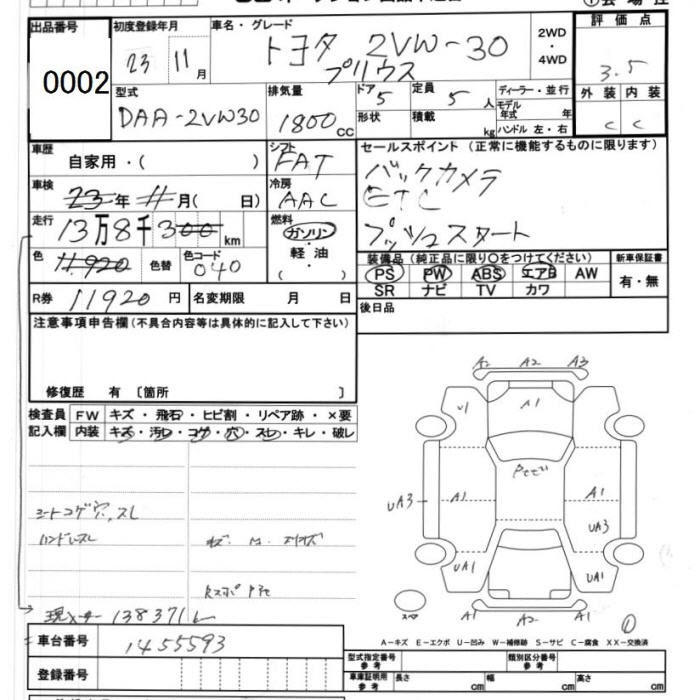 出品番号
0002
初度登録年月
23 11月
車名・グレード
トヨタ 2VW-30
プリウス
2WD
・
4WD
評価点
3.5
外装 内装
C C
型式
DAA-2VW30
排気量
1800 CC
ドア 5
定員 5 人
形状
積載 kg
ディーラー・並行
モデル年式 年
ハンドル 左・右
車歴
自家用・( )
シフト
FAT
セールスポイント (正常に機能するものに限ります)
バックカメラ
ETC
プッシュスタート
車検
23年11月( 日)
冷房
AAC
走行
13万8千300km
燃料
ガソリン
・
軽油
・
( )
色
11920
色替
色コード
040
装備品 (純正品に限り○をつけてください)
PS PW ABS エアB AW
SR ナビ TV カワ
新車保証書
有・無
R券 11920 円
名変期限 月 日
後日品
注意事項申告欄 (不具合内容等は具体的に記入して下さい)
修復歴 有 〔箇所 〕
検査員
記入欄
FW キズ・飛石・ヒビ割・リペア跡・×要
内装 キズ・汚レ・コゲ・穴・スレ・キレ・破レ
シートコゲ穴、スレ
ハンドルスレ
現メーター 138371
A2 A2 A3
U1
A1
UA3 A1
A1
UA3
UA1
UA1
スペア
A1 A2 A1
A-キズ E-エクボ U-凹み W-補修跡 S-サビ C-腐食 XX-交換済
車台番号 1455593
登録番号
型式指定番号
参考
類別区分番号
参考
車庫証明用
参考
長さ cm
幅 cm
高さ cm